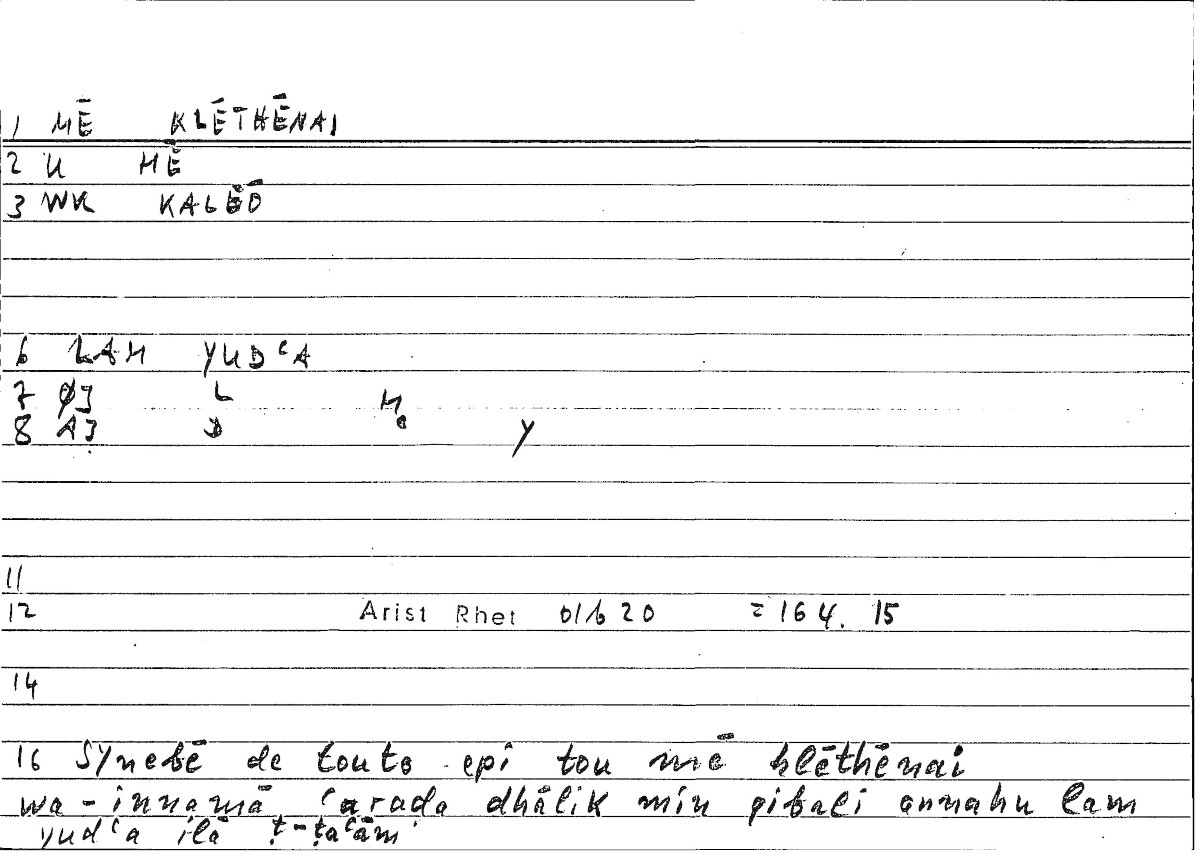 1 MĒ KLĒTHĒNAI
2 U MĒ
3 WK KALEŌ
6 LAM YUDʿA
7 ØJ L M
8 AJ D Y
11
12 Arist Rhet 01b 20 = 164. 15
14
16 Synebē de touto epi tou mē klēthēnai
wa-innamā ʿaraḍa dhālik min qibali annahu lam
yudʿa ilā ṭ-ṭaʿām